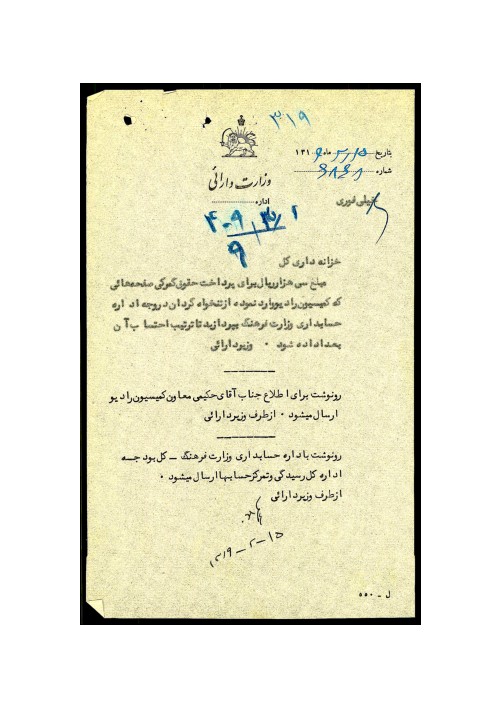 ۳۱۹
بتاریخ ۱۵/۲ ماه ۱۳۱۹
شماره
وزارت دارائی
اداره
خیلی فوری
خزانه داری کل
مبلغ سی هزار ریال برای پرداخت حقوق گمرکی صفحه هائی
که کمیسیون رادیو وارد نموده از تنخواه گردان در وجه اداره
حسابداری وزارت فرهنگ بپردازید تا ترتیب احتساب آن
بعدا داده شود ۰ وزیر دارائی
رونوشت برای اطلاع جناب آقای حکیمی معاون کمیسیون رادیو
ارسال میشود ۰ از طرف وزیر دارائی
رونوشت باداره حسابداری وزارت فرهنگ – کل بودجه
اداره کل رسیدگی و تمرکز حسابها ارسال میشود ۰
از طرف وزیر دارائی
۱۳۱۹-۲-۱۵
ل - ۵۵۰